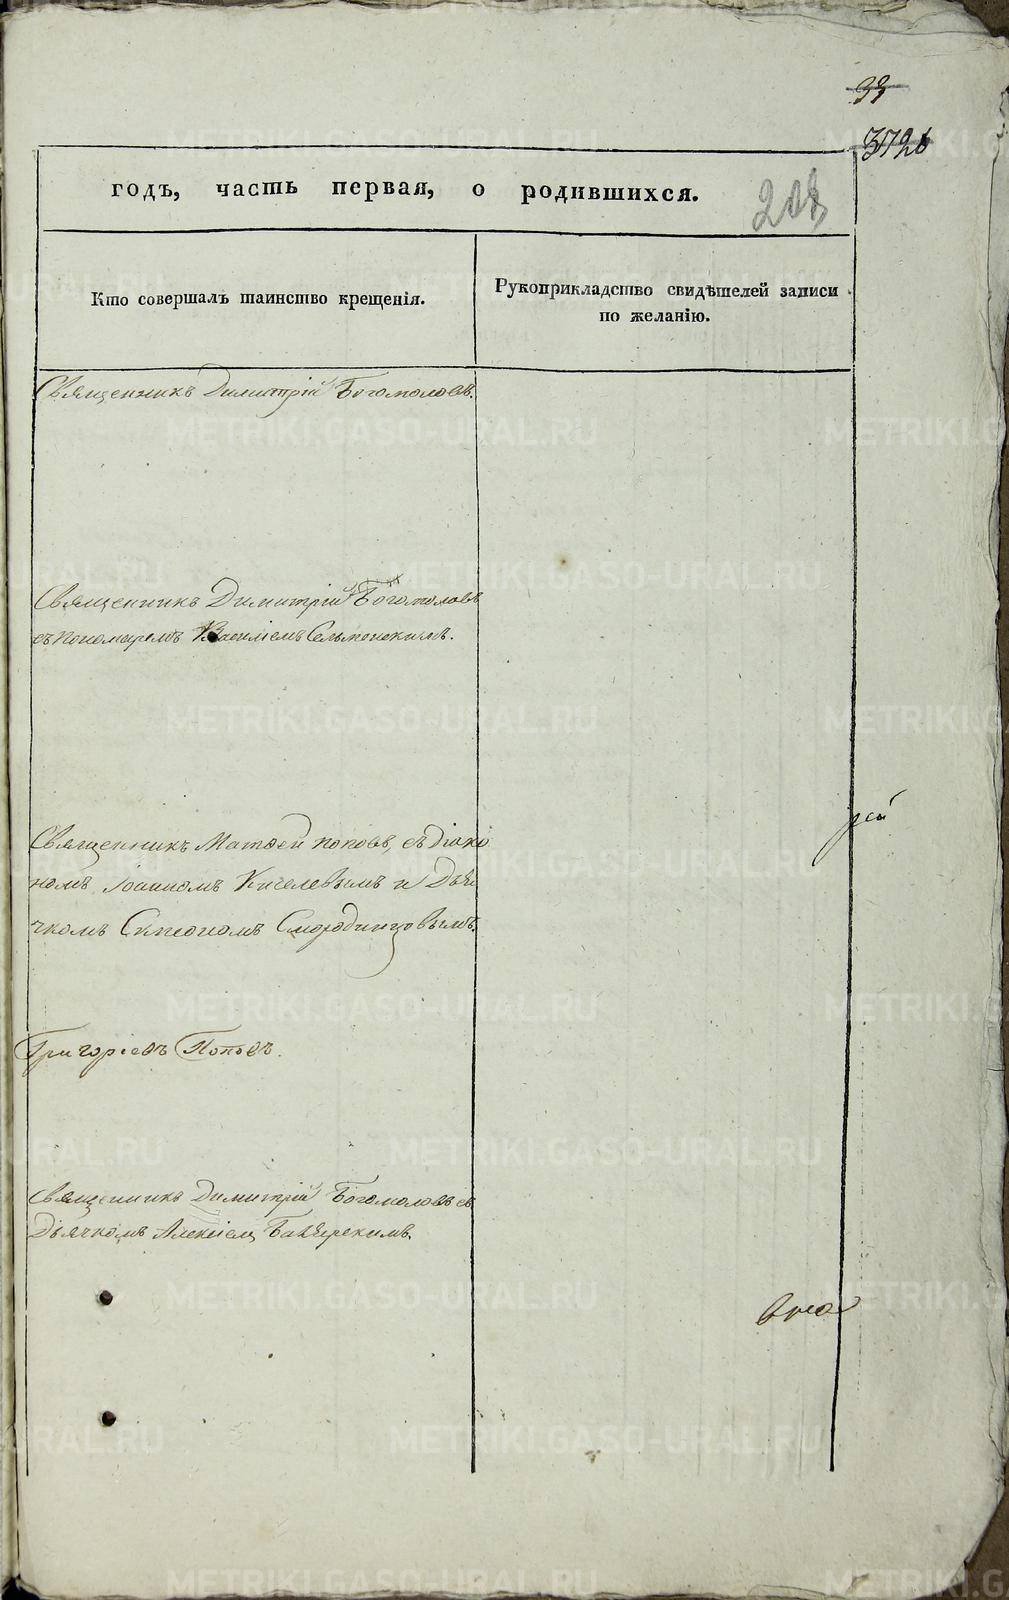 33
годъ, часть первая, о родившихся.
Кто совершалъ таинство крещенія.
Рукоприкладство свидѣтелей записи
по желанію.
Священникъ Димитрій Богомоловъ.
Священникъ Димитрій Богомоловъ
съ пономаремъ Василіемъ
Священникъ Матѳей поповъ, съ діако
номъ Іоанномъ Киселевымъ и Дья
чкомъ Симеономъ Смородинцовымъ.
Григоріевъ Поповъ.
Священникъ Димитрій Богомоловъ съ
Дьячкомъ Алексіем
METRIKI.GASO-URAL.RU